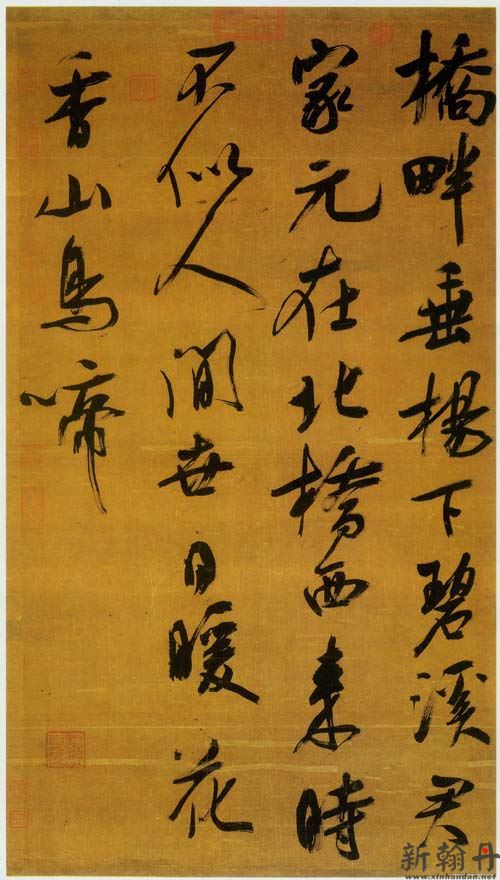 橋畔垂楊下碧溪君
家元在北橋西来時
不似人間世日暖花
香山鳥啼
新翰丹
www.xinhandan.net